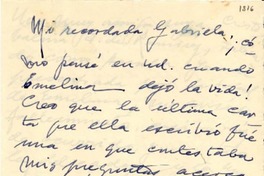 1816
Mi recordada Gabriela! ¡có
mo pensé en ud. cuando
Emelina dejó la vida!
Creo que la última car
ta que ella escribió fué
una en que contestaba
mis preguntas acerca